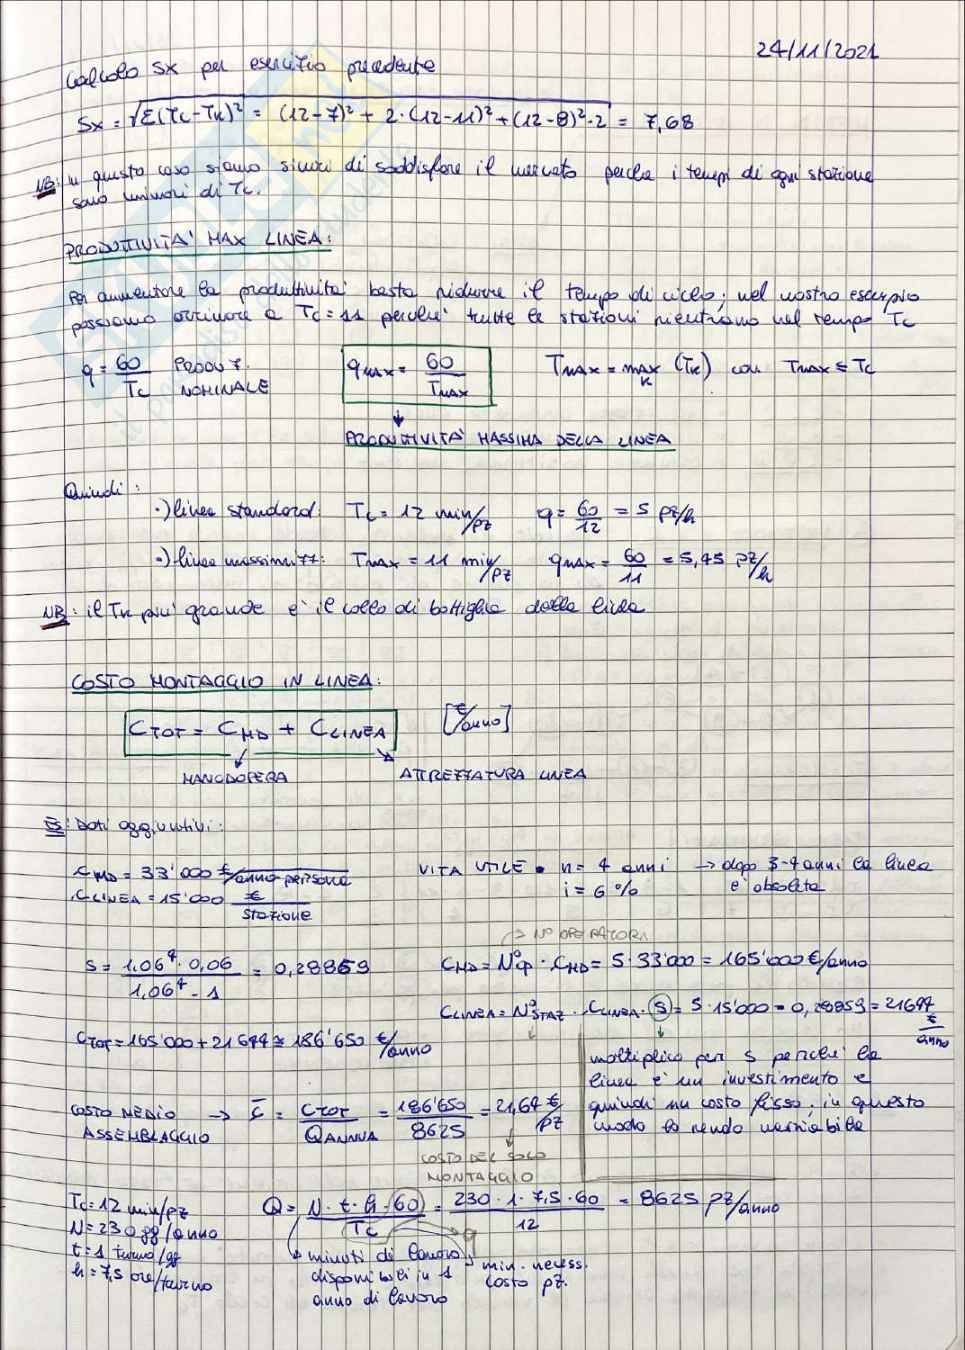 24/11/2021
Calcolo Sx per esercizio precedente
Sx = √Σ(Tc-Tk)² = (12-7)² + 2·(12-11)² + (12-8)²·2 = 7,68
NB: in questo caso siamo sicuri di soddisfare il mercato perché i tempi di ogni stazione
sono minori di Tc.
PRODUTTIVITA' MAX LINEA:
Per aumentare la produttività basta ridurre il tempo di ciclo; nel nostro esempio
possiamo arrivare a Tc = 11 perché tutte le stazioni rientrano nel tempo Tc
q = 60/Tc PRODUZ. NOMINALE qMAX = 60/TMAX TMAX = max K (Tk) con TMAX ≤ Tc
PRODUTTIVITA' MASSIMA DELLA LINEA
Quindi:
·) linea standard: Tc = 12 min/pz q = 60/12 = 5 pz/h
·) linea massimizz: TMAX = 11 min/pz qMAX = 60/11 = 5,45 pz/h
NB: il Tk più grande è il collo di bottiglia della linea
COSTO MONTAGGIO IN LINEA:
CTOT = CMD + CLINEA [€/anno]
MANODOPERA ATTREZZATURA LINEA
ES: Dati aggiuntivi:
CMD = 33'000 €/anno persona VITA UTILE • n = 4 anni → dopo 3-4 anni la linea
CLINEA = 15'000 €/stazione i = 6% è obsoleta
→ N° OPERATORI
S = 1,06⁴·0,06/1,06⁴-1 = 0,28859 CMD = N°op · CMD = 5·33'000 = 165'000 €/anno
CLINEA = N°STAZ · CLINEA · S = 5·15'000·0,28859 = 21644 €/anno
CTOT = 165'000 + 21644 ≅ 186'650 €/anno
moltiplico per s perché la
linea è un investimento e
quindi un costo fisso, in questo
modo lo rendo variabile
COSTO MEDIO ASSEMBLAGGIO → C̄ = CTOT/QANNUA = 186'650/8625 = 21,64 €/pz
COSTO DEL SOLO
MONTAGGIO
Tc = 12 min/pz Q = N·t·h·60/Tc = 230·1·7,5·60/12 = 8625 pz/anno
N = 230 gg/anno
t = 1 turno/gg
h = 7,5 ore/turno
q
minuti di lavoro
disponibili in 1
anno di lavoro
min. necess.
costo pz.